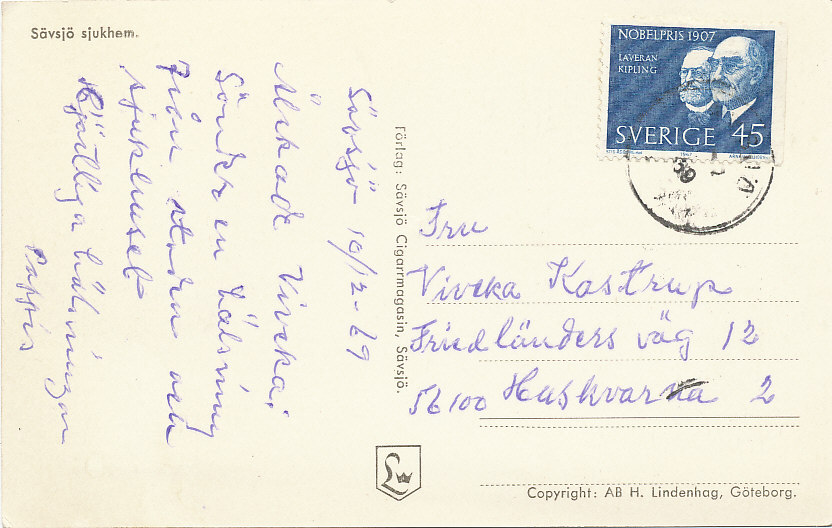 Sävsjö sjukhem.
Sävsjö 10/12-69
Älskade Viveka!
Sänder en hälsning
från staden och
sjukhuset
Hjärtliga hälsningar
Pappis
Förlag: Sävsjö Cigarrmagasin, Sävsjö.
NOBELPRIS 1907
LAVERAN
KIPLING
SVERIGE 45
Fru
Viveka Kastrup
Friedländers väg 12
56100 Huskvarna 2
Copyright: AB H. Lindenhag, Göteborg.